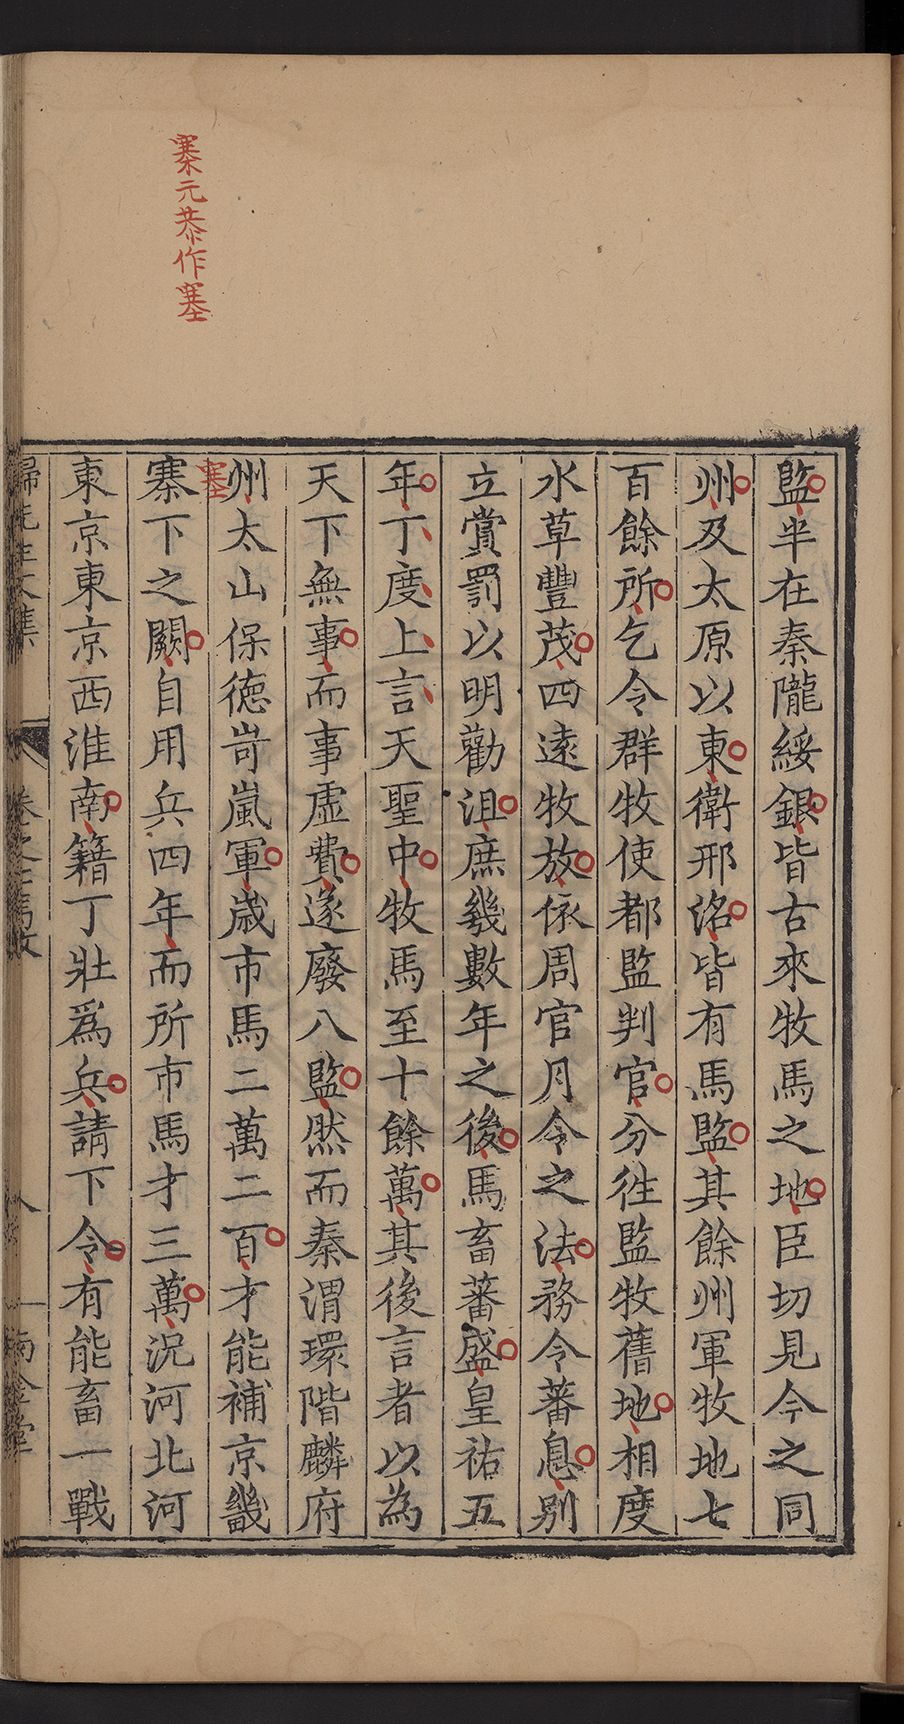 寨元恭作塞
監半在秦隴綏銀皆古來牧馬之地臣切見今之同
州及太原以東衛邢洺皆有馬監其餘州軍牧地七
百餘所乞令群牧使都監判官分徃監牧舊地相度
水草豐茂四遠牧放依周官月令之法務令蕃息别
立賞罰以明勸沮庶幾數年之後馬畜蕃盛皇祐五
年丁度上言天聖中牧馬至十餘萬其後言者以為
天下無事而事虛費遂廢八監然而秦渭環階麟府
州太山保德岢嵐軍歳市馬二萬二百才能補京畿
塞
寨下之闕自用兵四年而所市馬才三萬況河北河
東京東京西淮南籍丁壯爲兵請下令有能畜一戰